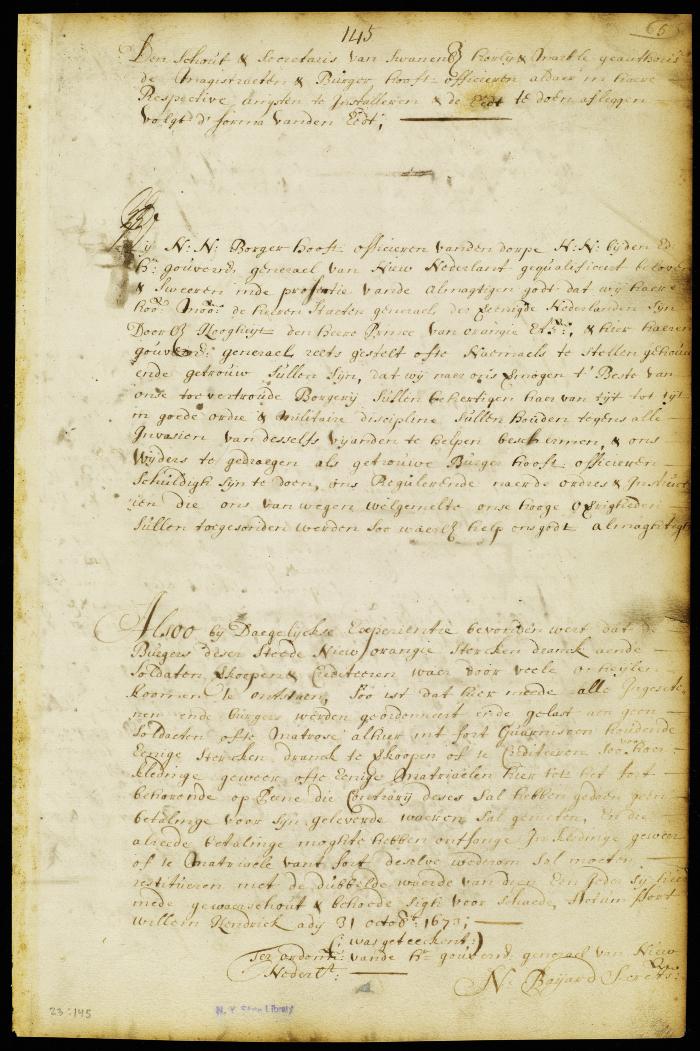 145
66
Den Schout & Secretaris van Swanenb: werden geauthoris
de Magistraeten & Burger hooft officieren aldaer in haere
Respective ampten te Installeren & de Eedt te doen afleggen
volgt d' forma vanden Eedt;
Wij N: N: Borger hooft officieren vanden dorpe N: N: bij den Ed:
hr: gouverno: generael van Nieu Nederlant gequalificeert beloven
& Sweeren inde presentie vande Almagtigen godt dat wij haere
hoo: Moo: de heeren Staeten generael der Vereenigde Nederlanden Syn
Doorl: Hoogheyt den heere Prince van orangie Etc:, & hier haeren
gouverno: generael reets gestelt ofte Naemaels te Stellen gehouw
ende getrouw Sullen Syn, dat wij naer ons vermogen t' Beste van
onse toevertroude Borgerij Sullen behertigen haer van tijt tot tijt
in goede ordre & militaire discipline Sullen houden tegens alle
Invasien van desselfs vijanden te helpen beschermen, & ons
wijders te gedraegen als getrouwe Burger hooft officieren
Schuldigh syn te doen, ons Regulerende naer de ordres & Instruct
ien die ons van wegen welgemelte onse hooge Overigheden
Sullen toegesonden werden Soo waerl: help ons godt almaghtigh
Alsoo bij Daegelyckse Experientie bevonden wert dat d:
Burgers deser Steede Nieu orangie Stercken dranck aende
Soldaten Verkoopen & Crediteeren waer door veele onheylen
koomen te ontstaen, Soo ist dat hier mede alle Ingesete
nen ende burgers werden geordonneert ende gelast aen geen
Soldaeten ofte Matrose alhier int fort Guarnisoen houdende
Eenige Stercken dranck te Verkoopen of te Crediteren noch haer
kledinge geweer ofte Eenige Matriaelen hier tot het fort
behorende op Peene die Contrarij deses Sal hebben gedaen geen
betalinge voor syn geleverde waeren Sal genieten, En die
alreede betalinge moghte hebben ontfange In kledinge geweer
of te Matriaele vant fort deselve wederom Sal moeten
restitueren met de dubbelde waerde van dien Een Jeder sy hier
mede gewaerschout & behoede sigh voor Schaede, Actum fort
willem Hendrick ady 31 octob: 1673;
(: was geteeckent:)
Ter ordonn: vande hr gouverno: generael van Nieu
Nederlt:
N: Bayard Secrets:
23:145
N. Y. State Library